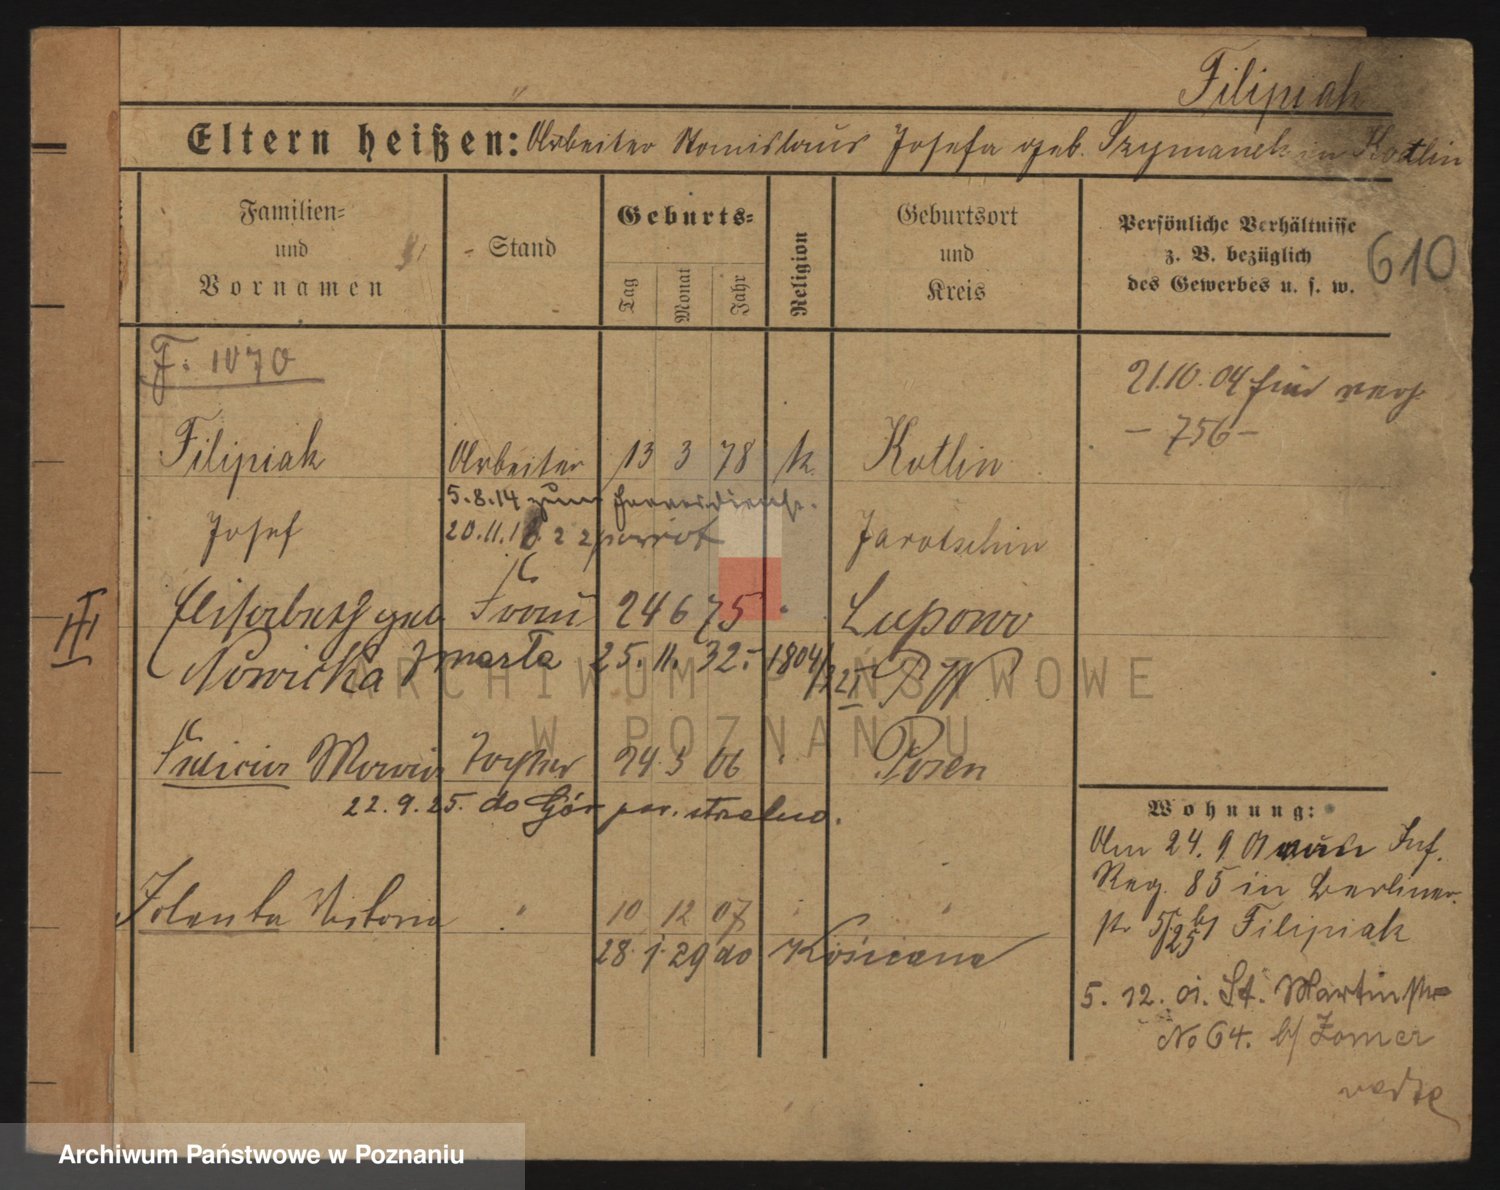 Filipiak
Eltern heißen: Arbeiter Stanislaus Josefa geb. Szymanek in Kotlin
Familien-
und
Vornamen
Stand
Geburts-
Tag
Monat
Jahr
Religion
Geburtsort
und
Kreis
Persönliche Verhältnisse
z. B. bezüglich
des Gewerbes u. s. w.
610
F. 1070
21.10.04
- 756 -
Filipiak Arbeiter 13 3 78 k. Kotlin
5.8.14 zum Heeresdienst.
Josef 20.11.18 Jarotschin
III
Elisabeth geb Frau 24 6 75 Lupono
Nowicka zmarła 25. 11. 32.- 1804/
Felicia Maria Tochter 24 3 06 Posen
22.9.25. do Gór
Jolenta Viktoria " 10 12 07 "
28 1 29 do Kościana
Wohnung:
Am 24. 9 01 vom Inf.
Reg. 85 in Berliner-
str b/ Filipiak
5. 12. 01. St. Martinstr
No 64. b/ Zomer
ARCHIWUM PAŃSTWOWE
W POZNANIU
Archiwum Państwowe w Poznaniu